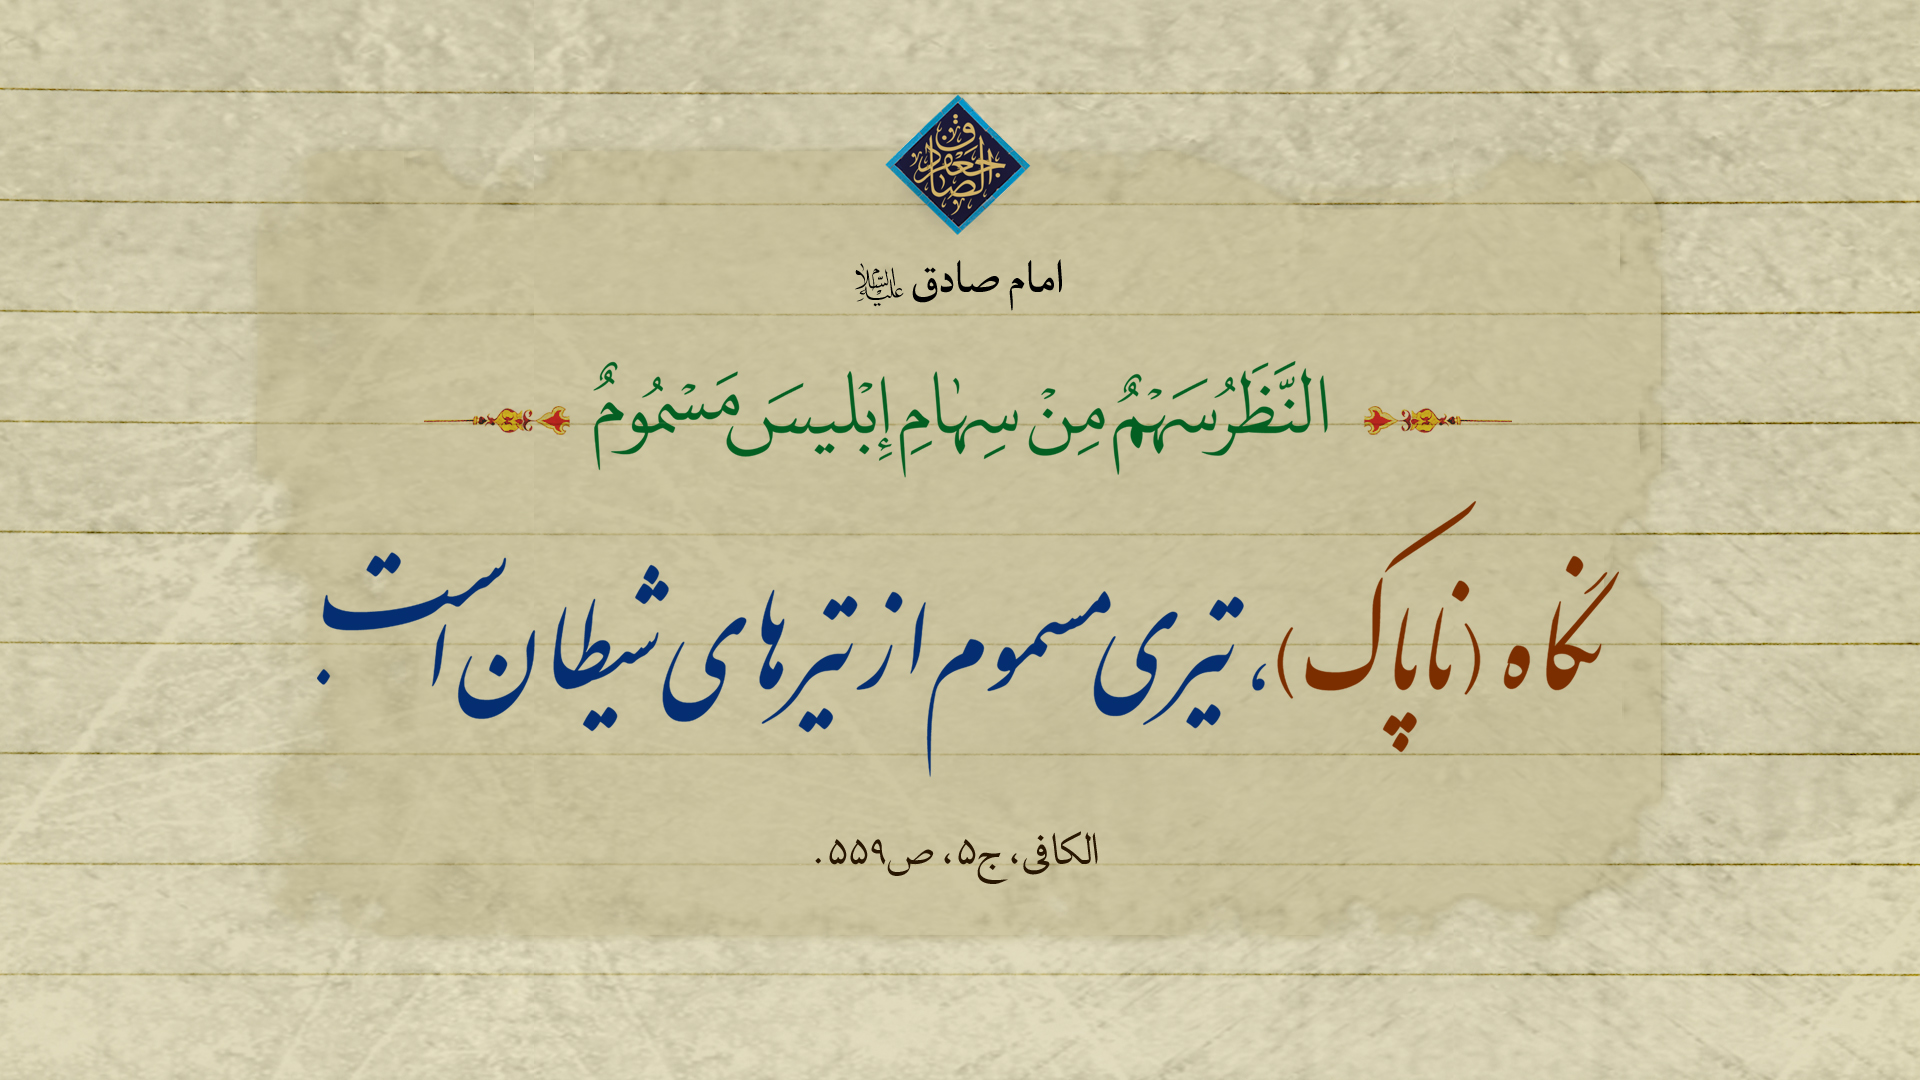 جعفر الصادق
امام صادق علیه السلام
النَّظَرُ سَهْمٌ مِنْ سِهٰامِ إِبْلیسَ مَسْمُومٌ
نگاه (ناپاک)، تیری مسموم از تیرهای شیطان است.
الکافی، ج۵، ص۵۵۹.